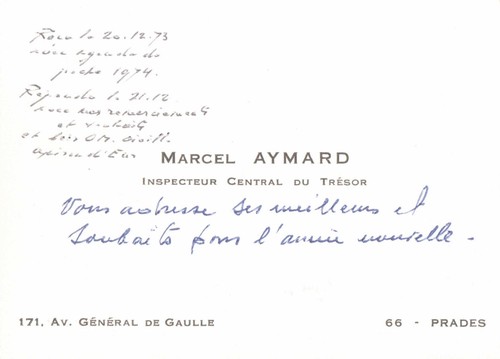 Reçu le 20.12.73
avec agenda de
poche 1974.
Répondu le 21.12
avec nos remerciements
et souhaits
et bons
MARCEL AYMARD
INSPECTEUR CENTRAL DU TRÉSOR
Vous adresse ses meilleurs et
souhaits pour l'année nouvelle.
171, AV. GÉNÉRAL DE GAULLE
66 - PRADES